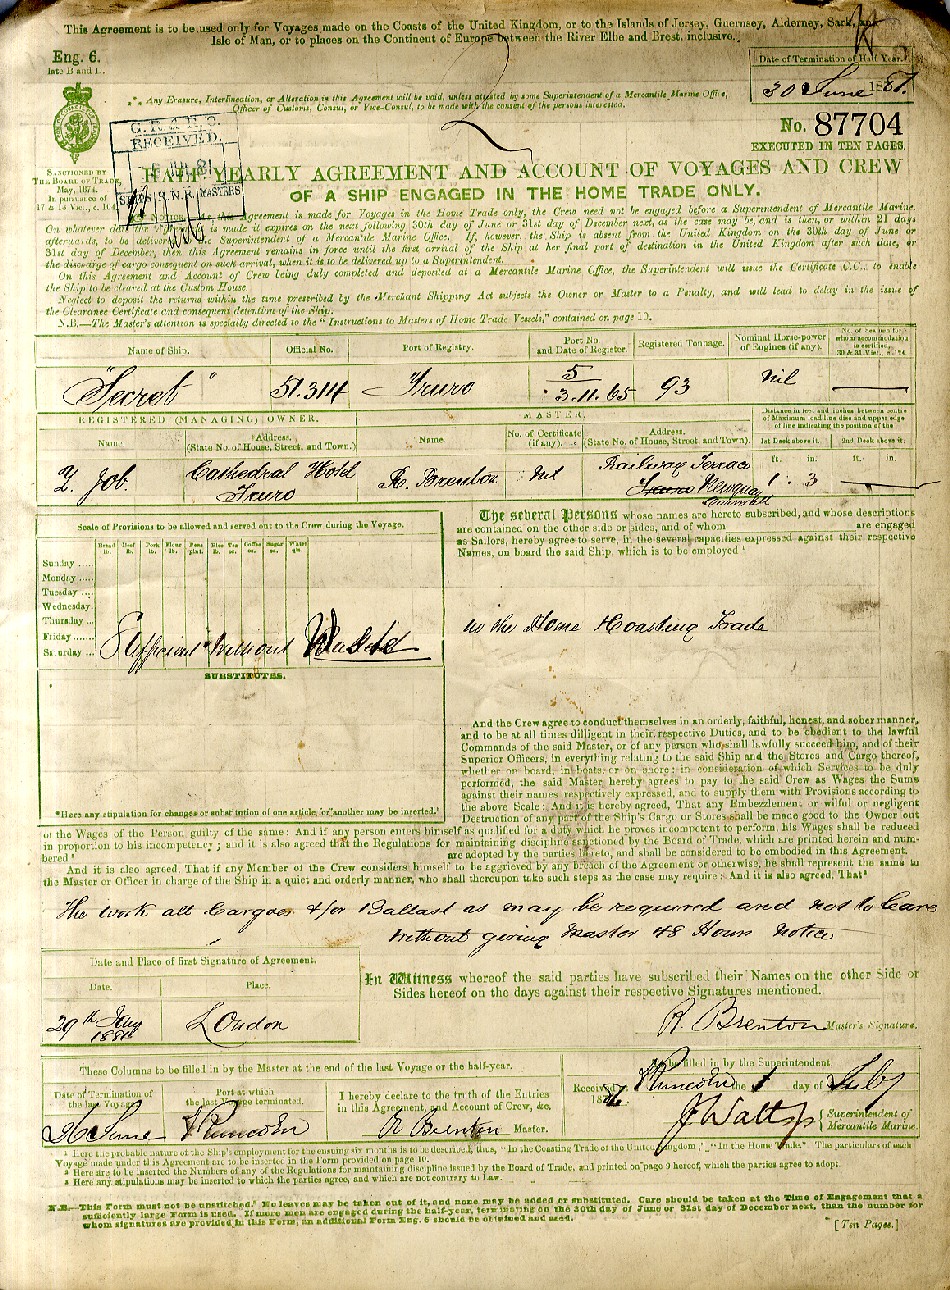 This Agreement is to be used only for Voyages made on the Coasts of the United Kingdom, or to the Islands of Jersey, Guernsey, Alderney, Sark, and
Isle of Man, or to places on the Continent of Europe between the River Elbe and Brest, inclusive.
Eng. 6.
late B and
Date of Termination of Half Year.
30 June 1881.
*** Any Erasure, Interlineation, or Alteration in this Agreement will be void, unless attested by some Superintendent of a Mercantile Marine Office,
Officer of Customs, Consul, or Vice-Consul, to be made with the consent of the persons interested.
No. 87704
EXECUTED IN TEN PAGES.
RECEIVED.
SANCTIONED BY
THE BOARD OF TRADE,
May, 1874.
In pursuance of
HALF YEARLY AGREEMENT AND ACCOUNT OF VOYAGES AND CREW
OF A SHIP ENGAGED IN THE HOME TRADE ONLY.
Agreement is made for Voyages in the Home Trade only, the Crew need not be engaged before a Superintendent of Mercantile Marine.
On whatever date the is made it expires on the next following 30th day of June or 31st day of December next, as the case may be and is then, or within 21 days
afterwards, to be delivered Superintendent of a Mercantile Marine Office. If, however, the Ship is absent from the United Kingdom on the 30th day of June or
31st day of December, then this Agreement remains in force until the first arrival of the Ship at her final port of destination in the United Kingdom after such date, or
the discharge of cargo consequent on such arrival, when it is to be delivered up to a Superintendent.
On this Agreement and Account of Crew being duly completed and deposited at a Mercantile Marine Office, the Superintendent will issue the Certificate C.C., to enable
the Ship to be cleared at the Custom House.
Neglect to deposit the returns within the time prescribed by the Merchant Shipping Act subjects the Owner or Master to a Penalty, and will lead to delay in the issue of
the Clearance Certificate and consequent detention of the Ship.
N.B.—The Master's attention is specially directed to the "Instructions to Masters of Home Trade Vessels," contained on page 10.
Name of Ship. Official No. Port of Registry. Port No. and Date of Register. Registered Tonnage. Nominal Horse-power of Engines (if any).
"Secret" 51.314 Truro 5 3.11.65 93 Nil
REGISTERED (MANAGING) OWNER. MASTER.
Name. Address. (State No. of House, Street, and Town.) Name. No. of Certificate (if any). Address. (State No. of House, Street, and Town.) 1st Deck above it. 2nd Deck above it.
ft. in. ft. in.
Job Cathedral Hotel Truro R. Brenton Nil Railway Terrace Newquay Cornwall 1 3
Scale of Provisions to be allowed and served out to the Crew during the Voyage.
Sunday
Monday
Tuesday
Wednesday
Thursday
Friday
Saturday
Sufficient Without Waste
SUBSTITUTES.
*Here any stipulation for changes or substitution of one article for another may be inserted.
The several Persons whose names are hereto subscribed, and whose descriptions
are contained on the other side or sides, and of whom are engaged
as Sailors, hereby agree to serve, in the several capacities expressed against their respective
Names, on board the said Ship, which is to be employed¹
in the Home Coasting Trade
And the Crew agree to conduct themselves in an orderly, faithful, honest, and sober manner,
and to be at all times dilligent in their respective Duties, and to be obedient to the lawful
Commands of the said Master, or of any person who shall lawfully succeed him, and of their
Superior Officers, in everything relating to the said Ship and the Stores and Cargo thereof,
whether on board, in boats, or on shore; in consideration of which Services to be duly
performed, the said Master hereby agrees to pay to the said Crew as Wages the Sums
against their names respectively expressed, and to supply them with Provisions according to
the above Scale: And it is hereby agreed, That any Embezzlement or wilful or negligent
Destruction of any part of the Ship's Cargo or Stores shall be made good to the Owner out
of the Wages of the Person guilty of the same: And if any person enters himself as qualified for a duty which he proves incompetent to perform, his Wages shall be reduced
in proportion to his incompetency; and it is also agreed that the Regulations for maintaining discipline sanctioned by the Board of Trade, which are printed herein and num-
bered² are adopted by the parties hereto, and shall be considered to be embodied in this Agreement.
And it is also agreed, That if any Member of the Crew considers himself to be aggrieved by any breach of the Agreement or otherwise, he shall represent the same to
the Master or Officer in charge of the Ship in a quiet and orderly manner, who shall thereupon take such steps as the case may require: And it is also agreed, That³
The work all Cargoes &/or Ballast as may be required and not to leave
Without giving Master 48 Hours notice
Date and Place of first Signature of Agreement.
Date. Place.
29th London
In Witness whereof the said parties have subscribed their Names on the other Side or
Sides hereof on the days against their respective Signatures mentioned.
R. Brenton Master's Signature.
These Columns to be filled in by the Master at the end of the last Voyage or the half-year.
Date of Termination of the last Voyage. Port at which the last Voyage terminated.
June Runcorn
I hereby declare to the truth of the Entries
in this Agreement, and Account of Crew, &c.
R Brenton Master.
To be filled in by the Superintendent
Received at Runcorn the 1 day of July
J Watts Superintendent of Mercantile Marine.
¹ Here the probable nature of the Ship's employment for the ensuing six months is to be described, thus, "In the Coasting Trade of the United Kingdom," "In the Home Trade." The particulars of each
Voyage made under this Agreement are to be inserted in the Form provided on page 10.
² Here are to be inserted the Numbers of any of the Regulations for maintaining discipline issued by the Board of Trade, and printed on page 9 hereof, which the parties agree to adopt.
³ Here any stipulations may be inserted to which the parties agree, and which are not contrary to Law.
N.B.—This Form must not be unstitched. No leaves may be taken out of it, and none may be added or substituted. Care should be taken at the Time of Engagement that a
sufficiently large Form is used. If more men are engaged during the half-year, terminating on the 30th day of June or 31st day of December next, than the number for
whom signatures are provided in this Form, an additional Form Eng. 6 should be obtained and used.
[Ten Pages.]